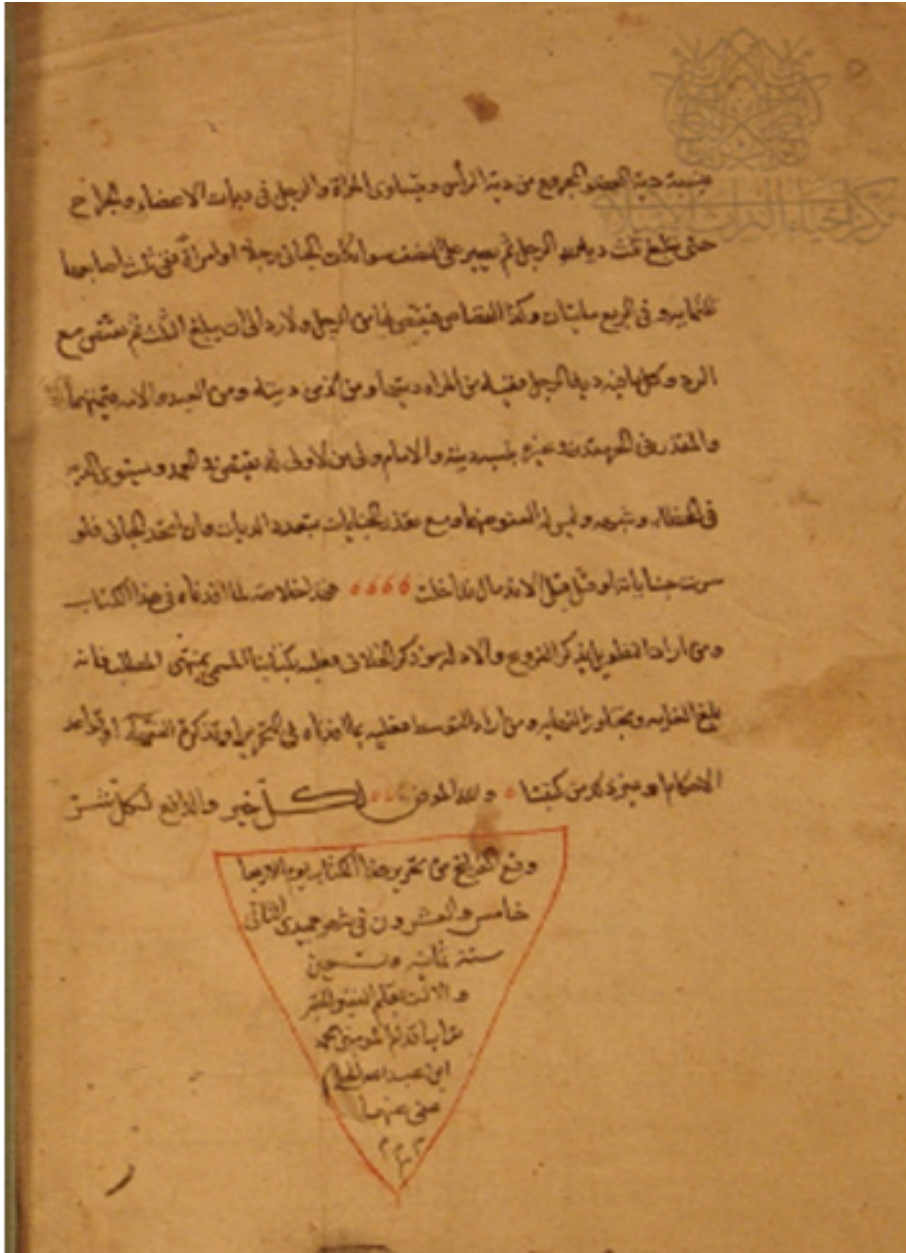 بنسبة دية العضو المجروح من دية الرأس ويتساوى المراة والرجل فى ديات الاعضاء والجراح
حتى تبلغ ثلث دية الرجل ثم تصير على النصف سواء كان الجانى رجلا او امراة ففى ثلث اصابعها
ثلثمايه وفى اربع مايتان وكذا القصاص فيقتص لها من الرجل ولا رد الى ان يبلغ الثلث ثم يقتص مع
الرد وكل ما فيه دية الرجل ففيه من المراه ديتها ومن الذمى ديته ومن العبد والامه قيمتهما
والمقدر فى الحر مقدر فى غيره بنسبه ديته والامام ولى من لا ولى له يقتص فى العمد ويستوفى الديه
فى الخطاء وشبهه وليس له العفو عنهما ومع تعدد الجنايات يتعدد الديات وان اتحد الجانى فلو
سرت جناياته او قتل قبل الاندمال تداخلت فهذه خلاصة لما افدناه فى هذا الكتاب
ومن اراد التطويل بذكر الفروع والادله وذكر الخلاف فعليه بكتابنا المسمى بمنتهى المطلب فانه
بلغ الغايه وتجاوز النهايه ومن اراد التوسط فعليه بما افدناه فى التحرير او تذكرة الفقهآء او قواعد
الاحكام او غير ذلك من كتبنا والله الموفق لكل خير والدافع لكل شر
وقع الفراغ من تحرير هذا الكتاب يوم الاربعا
خامس والعشرون فى شهر جميدى الثانى
سنة ثمانيه وتسعين
والالف بقلم الفقير الحقير
تراب اقدام المومنين محمد
ابن عبد الله
عفى عنهما
م م م
مركز احياء التراث الاسلامي